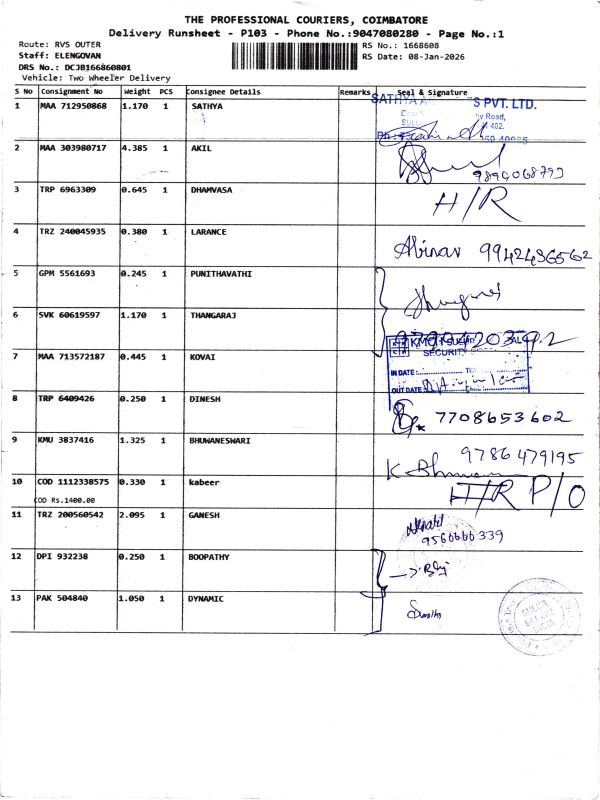 THE PROFESSIONAL COURIERS, COIMBATORE
Delivery Runsheet - P103 - Phone No.:9047080280 - Page No.:1
Route: RVS OUTER
Staff: ELENGOVAN
DRS No.: DCJB166860801
Vehicle: Two Wheeler Delivery
RS No.: 1668608
RS Date: 08-Jan-2026
S No Consignment No Weight PCS Consignee Details Remarks Seal & Signature
1 MAA 712950868 1.170 1 SATHYA
SATHYA S PVT. LTD.
2 MAA 303980717 4.385 1 AKIL
3 TRP 6963309 0.645 1 DHAMVASA H/R
4 TRZ 240045935 0.380 1 LARANCE
Abinav 9942436562
5 GPM 5561693 0.245 1 PUNITHAVATHI
6 SVK 60619597 1.170 1 THANGARAJ
7 MAA 713572187 0.445 1 KOVAI
SECURITY
IN DATE:
OUT DATE
8 TRP 6409426 0.250 1 DINESH 7708653602
9 KMU 3837416 1.325 1 BHUWANESWARI 9786479195
10 COD 1112338575 0.330 1 kabeer H/R P/O
COD Rs.1400.00
11 TRZ 200560542 2.095 1 GANESH
12 DPI 932238 0.250 1 BOOPATHY
13 PAK 504840 1.050 1 DYNAMIC